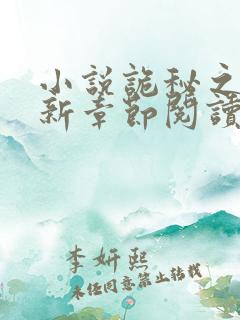 小說詭秘之
新章節閱讀
李妍熙
未经同意禁止转载